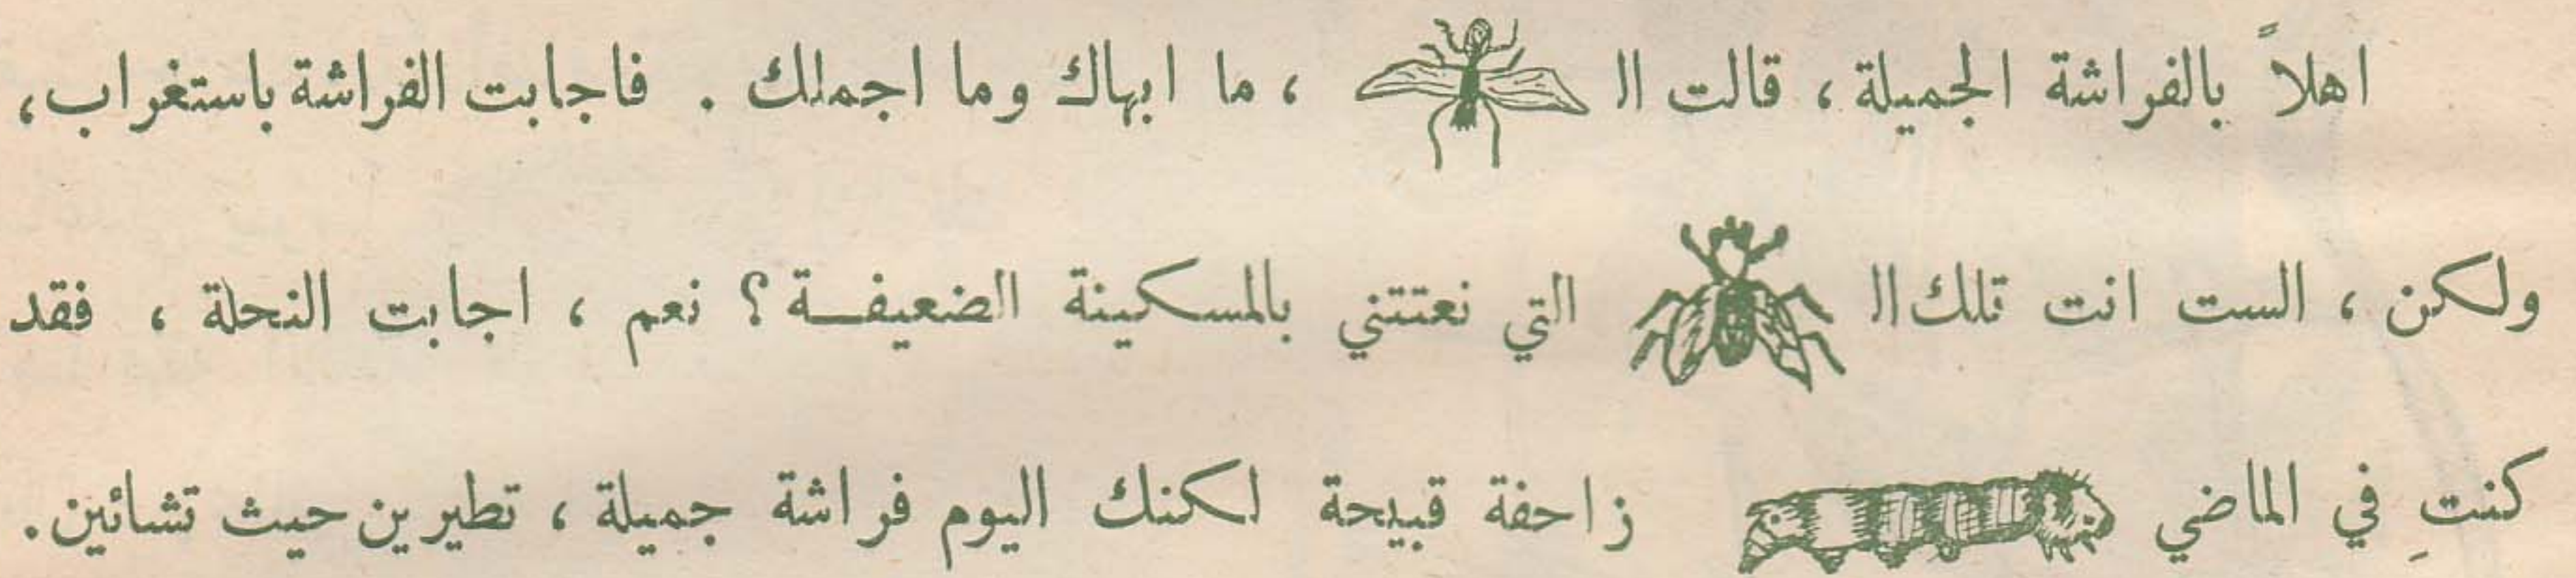 اهلاً بالفراشة الجميلة ، قالت الـ ، ما ابهاك وما اجملك . فاجابت الفراشة باستغراب ،
ولكن ، الست انت تلك الـ التي نعتتني بالمسكينة الضعيفـة ؟ نعم ، اجابت النحلة ، فقد
كنتِ في الماضي زاحفة قبيحة لكنك اليوم فراشة جميلة ، تطيرين حيث تشائين .